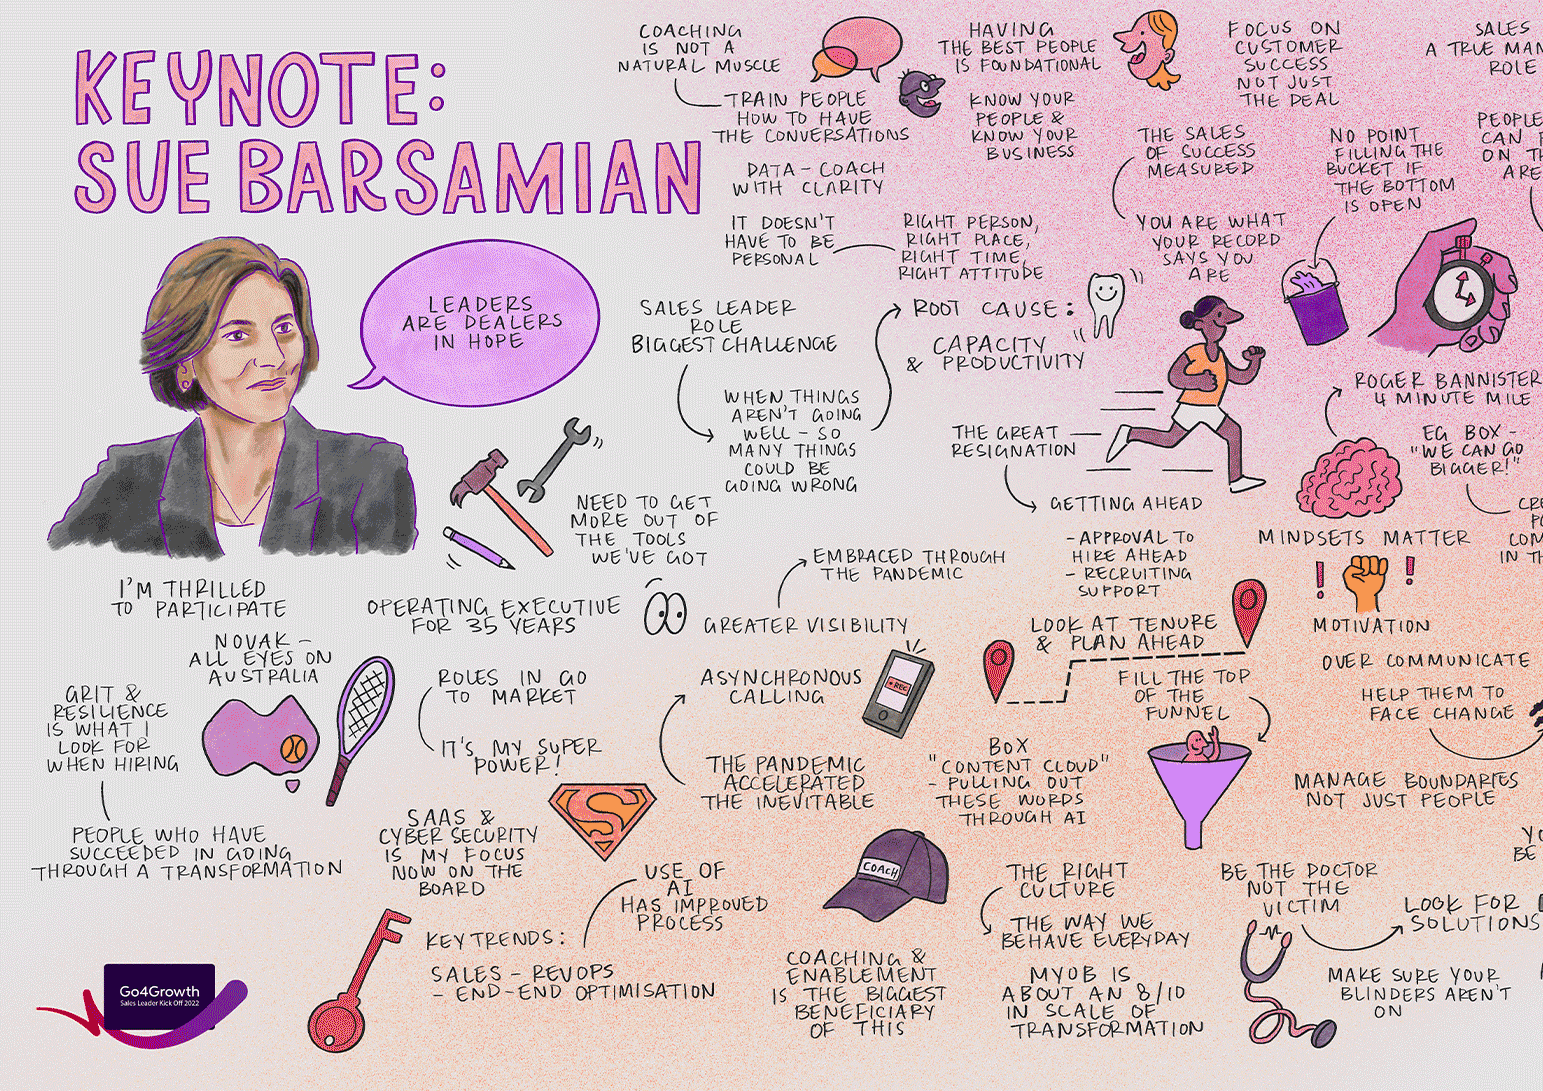 KEYNOTE:
SUE BARSAMIAN
LEADERS
ARE DEALERS
IN HOPE
I'M THRILLED
TO PARTICIPATE
NOVAK –
ALL EYES ON
AUSTRALIA
GRIT &
RESILIENCE
IS WHAT I
LOOK FOR
WHEN HIRING
PEOPLE WHO HAVE
SUCCEEDED IN GOING
THROUGH A TRANSFORMATION
NEED TO GET
MORE OUT OF
THE TOOLS
WE'VE GOT
OPERATING EXECUTIVE
FOR 35 YEARS
ROLES IN GO
TO MARKET
IT'S MY SUPER
POWER!
S
SAAS &
CYBER SECURITY
IS MY FOCUS
NOW ON THE
BOARD
KEY TRENDS:
SALES – REVOPS
– END-END OPTIMISATION
USE OF
AI
HAS IMPROVED
PROCESS
Go4Growth
Sales Leader Kick Off 2022
COACHING
IS NOT A
NATURAL MUSCLE
TRAIN PEOPLE
HOW TO HAVE
THE CONVERSATIONS
DATA – COACH
WITH CLARITY
IT DOESN'T
HAVE TO BE
PERSONAL
RIGHT PERSON,
RIGHT PLACE,
RIGHT TIME,
RIGHT ATTITUDE
HAVING
THE BEST PEOPLE
IS FOUNDATIONAL
KNOW YOUR
PEOPLE &
KNOW YOUR
BUSINESS
SALES LEADER
ROLE
BIGGEST CHALLENGE
WHEN THINGS
AREN'T GOING
WELL – SO
MANY THINGS
COULD BE
GOING WRONG
ROOT CAUSE:
CAPACITY
& PRODUCTIVITY
THE GREAT
RESIGNATION
GETTING AHEAD
- APPROVAL TO
HIRE AHEAD
- RECRUITING
SUPPORT
EMBRACED THROUGH
THE PANDEMIC
GREATER VISIBILITY
ASYNCHRONOUS
CALLING
REC
THE PANDEMIC
ACCELERATED
THE INEVITABLE
LOOK AT TENURE
& PLAN AHEAD
FILL THE TOP
OF THE
FUNNEL
BOX
"CONTENT CLOUD"
– PULLING OUT
THESE WORDS
THROUGH AI
COACH
COACHING &
ENABLEMENT
IS THE BIGGEST
BENEFICIARY
OF THIS
THE RIGHT
CULTURE
THE WAY WE
BEHAVE EVERYDAY
MYOB IS
ABOUT AN 8/10
IN SCALE OF
TRANSFORMATION
FOCUS ON
CUSTOMER
SUCCESS
NOT JUST
THE DEAL
THE SALES
OF SUCCESS
MEASURED
YOU ARE WHAT
YOUR RECORD
SAYS YOU
ARE
NO POINT
FILLING THE
BUCKET IF
THE BOTTOM
IS OPEN
SALES
A TRUE
ROLE
PEOPLE
CAN
ON
ARE
ROGER BANNISTER
4 MINUTE MILE
EG BOX –
"WE CAN GO
BIGGER!"
IN
MINDSETS MATTER
! !
MOTIVATION
OVER COMMUNICATE
HELP THEM TO
FACE CHANGE
MANAGE BOUNDARIES
NOT JUST PEOPLE
BE
BE THE DOCTOR
NOT THE
VICTIM
LOOK FOR
SOLUTIONS
MAKE SURE YOUR
BLINDERS AREN'T
ON